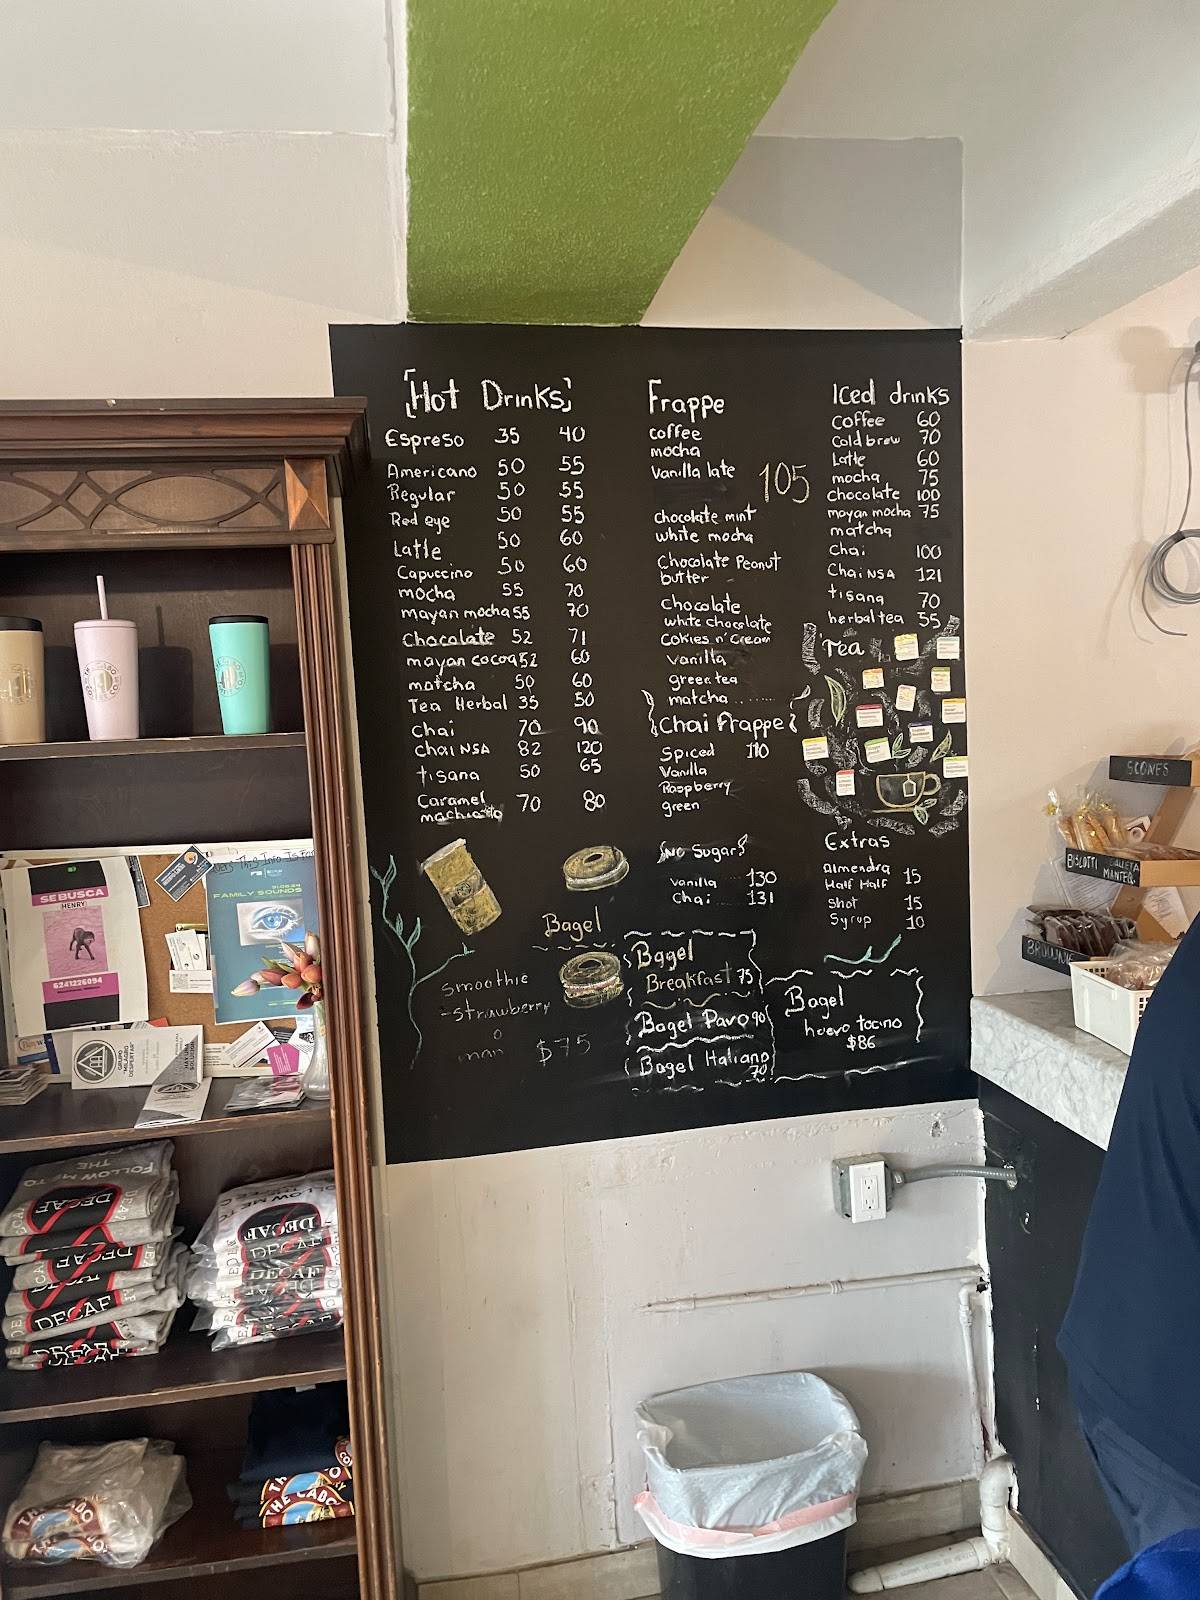 Hot Drinks
Espreso 35 40
Americano 50 55
Regular 50 55
Red eye 50 55
Latte 50 60
Capuccino 50 60
mocha 55 70
mayan mocha 55 70
Chocolate 52 71
mayan cocoa 52 60
matcha 50 60
Tea Herbal 35 50
Chai 70 90
Chai NSA 82 120
tisana 50 65
Caramel 70 80
smoothie
-strawberry
o
man
$75
Bagel
Frappe
coffee
mocha
Vanilla late
105
chocolate mint
white mocha
Chocolate Peanut
butter
chocolate
white chocolate
Cookies n' Cream
Vanilla
green tea
matcha
Chai Frappe
Spiced 110
Vanilla
Raspberry
green
No Sugar
Vanilla 130
Chai 131
Bagel
Breakfast 75
Bagel Pavo 90
Bagel Italiano
70
Iced drinks
Coffee 60
Cold brew 70
Latte 60
mocha 75
chocolate 100
mayan mocha 75
matcha
Chai 100
Chai NSA 121
tisana 70
herbal tea 55
Tea
Extras
Almendra
Half Half 15
shot 15
Syrup 10
Bagel
huevo tocino
$86
SCONES
BISCOTTI
GALLETA
MANTEQ.
BROWNIE
SE BUSCA
HENRY
6241226094
FAMILY SOUNDS
GRUPO
"MILAGRO
DESPERTAR"
FOLLOW ME TO
THE
DECAF
DECAF
DECAF
DECAF
FOLLOW ME TO
DECAF
DECAF
DECAF
DECAF
THE CABO